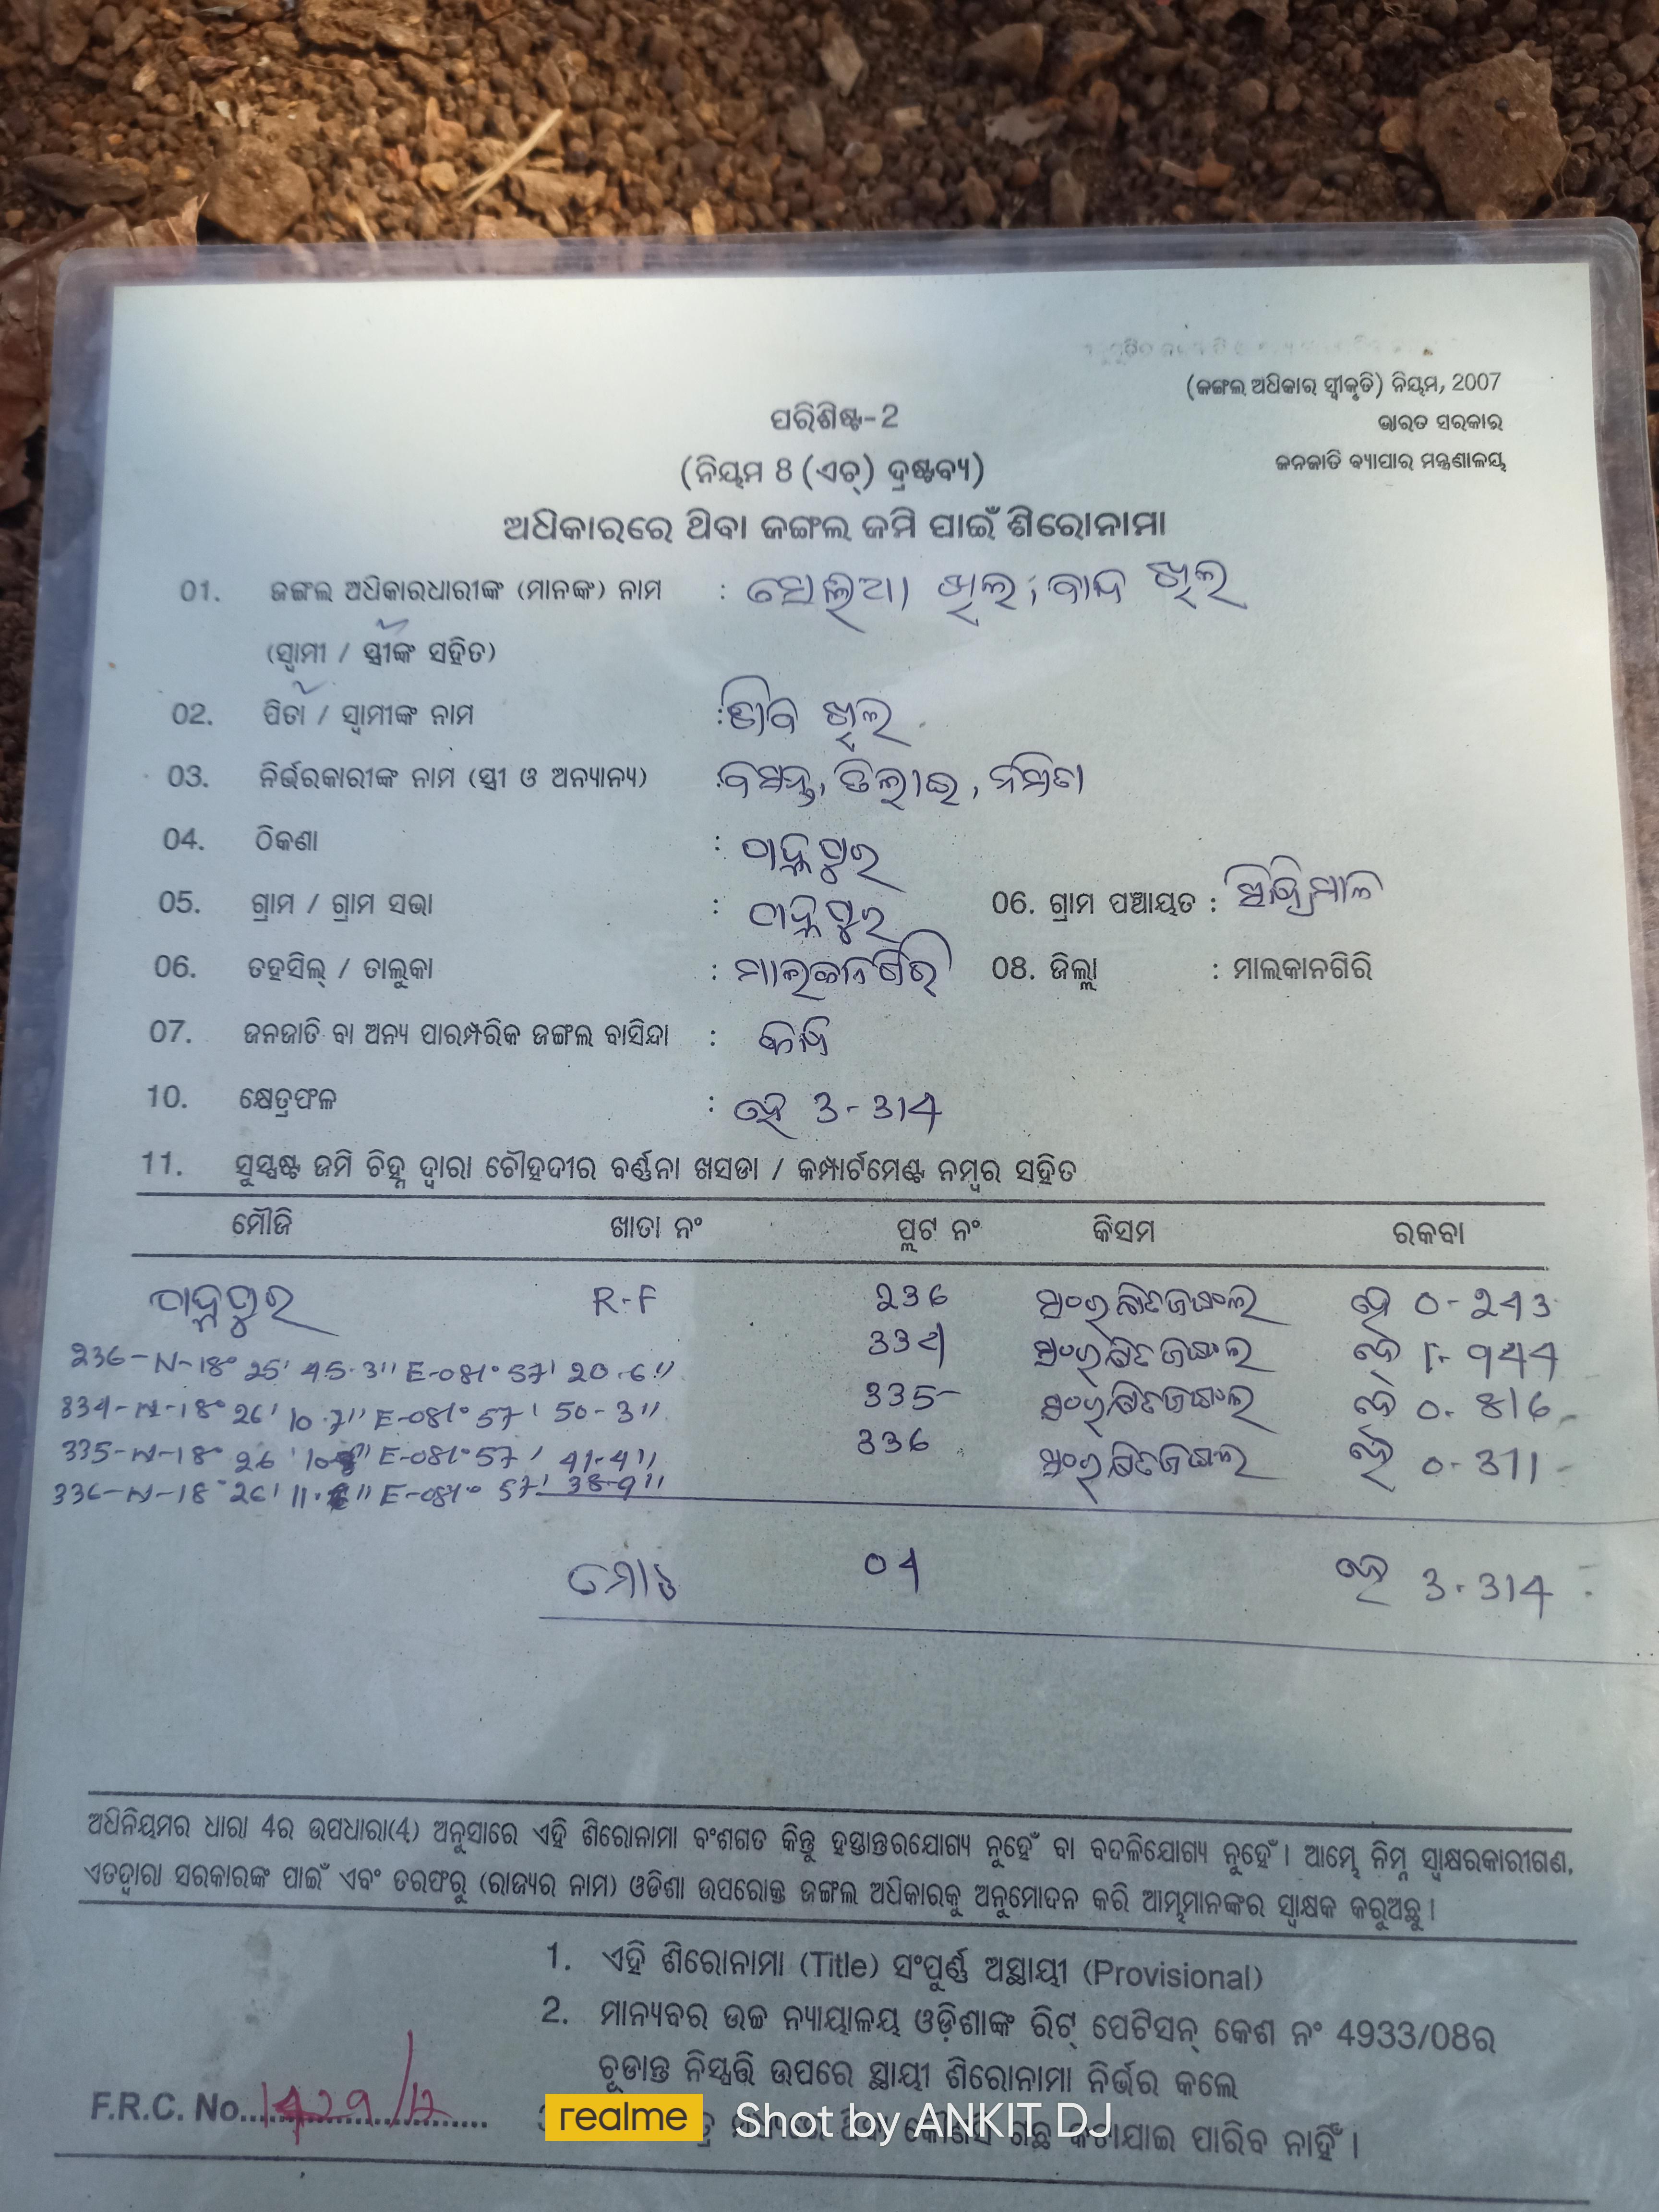 (ଜଙ୍ଗଲ ଅଧିକାର ସ୍ୱୀକୃତି) ନିୟମ, 2007
ପରିଶିଷ୍ଟ-2
ଭାରତ ସରକାର
(ନିୟମ 8 (ଏଚ୍) ଦ୍ରଷ୍ଟବ୍ୟ)
ଜନଜାତି ବ୍ୟାପାର ମନ୍ତ୍ରଣାଳୟ
ଅଧିକାରରେ ଥିବା ଜଙ୍ଗଲ ଜମି ପାଇଁ ଶିରୋନାମା
01. ଜଙ୍ଗଲ ଅଧିକାରଧାରୀଙ୍କ (ମାନଙ୍କ) ନାମ :
(ସ୍ୱାମୀ / ସ୍ତ୍ରୀଙ୍କ ସହିତ)
02. ପିତା / ସ୍ୱାମୀଙ୍କ ନାମ :
03. ନିର୍ଭରକାରୀଙ୍କ ନାମ (ସ୍ତ୍ରୀ ଓ ଅନ୍ୟାନ୍ୟ) :
04. ଠିକଣା :
05. ଗ୍ରାମ / ଗ୍ରାମ ସଭା : 06. ଗ୍ରାମ ପଞ୍ଚାୟତ :
06. ତହସିଲ୍ / ତାଲୁକା : ମାଲକାନଗିରି 08. ଜିଲ୍ଲା : ମାଲକାନଗିରି
07. ଜନଜାତି ବା ଅନ୍ୟ ପାରମ୍ପରିକ ଜଙ୍ଗଲ ବାସିନ୍ଦା :
10. କ୍ଷେତ୍ରଫଳ : ହେ 3-314
11. ସୁସ୍ପଷ୍ଟ ଜମି ଚିହ୍ନ ଦ୍ୱାରା ଚୌହଦୀର ବର୍ଣ୍ଣନା ଖସଡା / କମ୍ପାର୍ଟମେଣ୍ଟ ନମ୍ବର ସହିତ
ମୌଜି ଖାତା ନଂ ପ୍ଲଟ ନଂ କିସମ ରକବା
R-F 236 ସଂରକ୍ଷିତ ଜଙ୍ଗଲ ହେ 0-243
334 ସଂରକ୍ଷିତ ଜଙ୍ଗଲ ହେ 1-944
335 ସଂରକ୍ଷିତ ଜଙ୍ଗଲ ହେ 0-816
336 ସଂରକ୍ଷିତ ଜଙ୍ଗଲ ହେ 0-311
236-N-18° 25' 45.3" E-081° 57' 20.6"
334-N-18° 26' 10.7" E-081° 57' 50-3"
335-N-18° 26' E-081° 57' 41-4"
336-N-18° 26' E-081° 57' 38-9"
ମୋଟ 04 ହେ 3-314
ଅଧିନିୟମର ଧାରା 4ର ଉପଧାରା(4) ଅନୁସାରେ ଏହି ଶିରୋନାମା ବଂଶଗତ କିନ୍ତୁ ହସ୍ତାନ୍ତରଯୋଗ୍ୟ ନୁହେଁ ବା ବଦଳିଯୋଗ୍ୟ ନୁହେଁ। ଆମ୍ଭେ ନିମ୍ନ ସ୍ୱାକ୍ଷରକାରୀଗଣ,
ଏତଦ୍ୱାରା ସରକାରଙ୍କ ପାଇଁ ଏବଂ ତରଫରୁ (ରାଜ୍ୟର ନାମ) ଓଡିଶା ଉପରୋକ୍ତ ଜଙ୍ଗଲ ଅଧିକାରକୁ ଅନୁମୋଦନ କରି ଆମ୍ଭମାନଙ୍କର ସ୍ୱାକ୍ଷକ କରୁଅଛୁ।
1. ଏହି ଶିରୋନାମା (Title) ସଂପୂର୍ଣ୍ଣ ଅସ୍ଥାୟୀ (Provisional)
2. ମାନ୍ୟବର ଉଚ୍ଚ ନ୍ୟାୟାଳୟ ଓଡ଼ିଶାଙ୍କ ରିଟ୍ ପେଟିସନ୍ କେଶ ନଂ 4933/08ର
ଚୂଡାନ୍ତ ନିସ୍ପତ୍ତି ଉପରେ ସ୍ଥାୟୀ ଶିରୋନାମା ନିର୍ଭର କଲେ
F.R.C. No.
କୌଣସି ଗଛ କଟାଯାଇ ପାରିବ ନାହିଁ।
realme Shot by ANKIT DJ